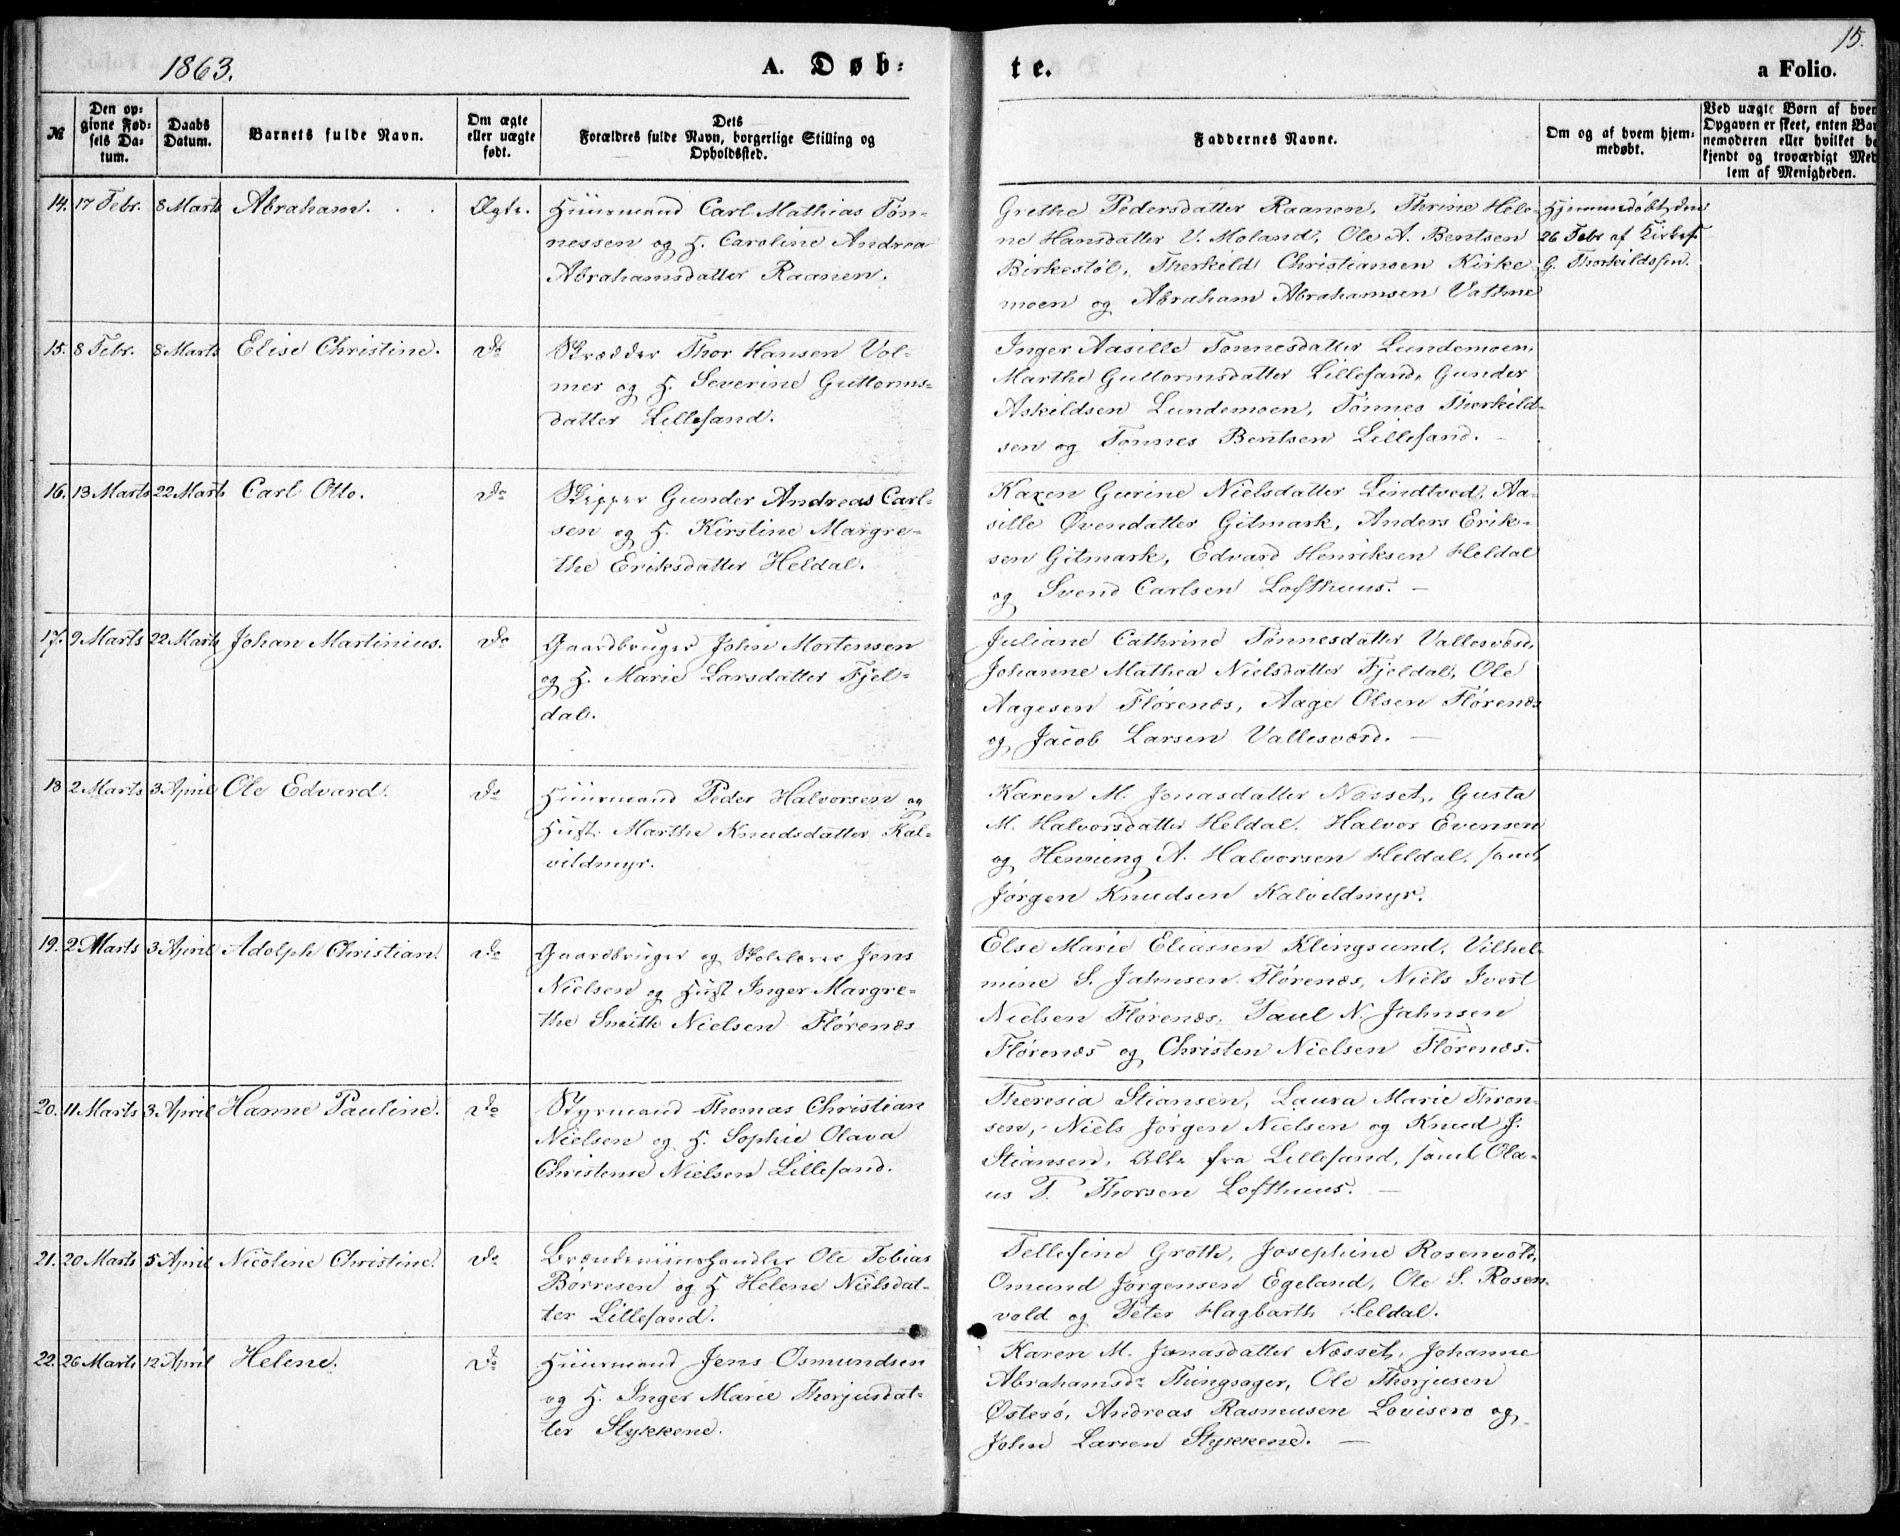 1863.
A. Døb-
te.
15.
a Folio.
№
Den op-
givne Fød-
sels Da-
tum.
Daabs
Datum.
Barnets fulde Navn.
Om ægte
eller uægte
født.
Dets
Forældres fulde Navn, borgerlige Stilling og
Opholdssted.
Faddernes Navne.
Om og af hvem hjem-
medøbt.
Ved uægte Børn af hvem
Opgaven er skeet, enten Bar
nemoderen eller hvilket be
kjendt og troværdigt Med
lem af Menigheden.
14. 17 Febr. 8 Marts Abraham. Ægte.
Huusmand Carl Mathias Tøn-
nessen og H. Caroline Andrea
Abrahamsdatter Raanen.
Grethe Pedersdatter Raanen, Thrine Hele-
ne Hansdatter V. Moland, Ole A. Bentsen
Birkestøl, Therkild Christiansen Kirke
moen og Abraham Abrahamsen Vathne
Hjemmedøbt den
26 Febr af Kirkes.
G. Thorkildsen.
15. 8 Febr. 8 Marts Elise Christine. Do
Skrædder Thor Hansen Vol-
mer og H. Severine Guttorms-
datter Lillesand.
Inger Aasille Tønnesdatter Lundemoen,
Marthe Guttormsdatter Lillesand, Gunder
Askildsen Lundemoen, Tønnes Therkild-
sen og Tønnes Bentsen Lillesand. –
16. 13 Marts 22 Marts Carl Otto. Do
Skipper Gunder Andreas Carl-
sen og H. Kirstine Margre-
the Eriksdatter Heldal.
Karen Gurine Nielsdatter Lindtved, Aa-
sille Øvendatter Gitmark, Anders Erik-
sen Gitmark, Edvard Henriksen Heldal
og Svend Carlsen Lofthuus. –
17. 9 Marts 22 Marts Johan Martinius. Do
Gaardbruger John Mortensen
og H. Marie Larsdatter Fjel-
dal.
Juliane Cathrine Tønnesdatter Vallesværd,
Johanne Mathea Nielsdatter Fjeldal, Ole
Aagesen Flørenæs, Aage Olsen Flørenæs
og Jacob Larsen Vallesværd. –
18 2 Marts 3 April Ole Edvard. Do
Huusmand Peder Halvorsen og
Hust. Marthe Knudsdatter Kal-
vildmyr.
Karen M. Jonasdatter Næsset, Gusta
M. Halvorsdatter Heldal, Halvor Evensen
og Henning A. Halvorsen Heldal, samt
Jørgen Knudsen Kalvildmyr.
19. 2 Marts 3 April Adolph Christian. Do
Gaardbruger og Skolelærer Jens
Nielsen og Hust Inger Margre-
the Smith Nielsen Flørenæs
Else Marie Eliassen Klingsund, Vilhel-
mine S. Jahnsen Flørenæs, Niels Ivert
Nielsen Flørenæs, Paul N. Jahnsen
Flørenæs og Christen Nielsen Flørenæs.
20. 11 Marts 3 April Hanne Pauline. Do
Styrmand Thomas Christian
Nielsen og H. Sophie Olava
Christense Nielsen Lillesand.
Theresia Stiansen, Laura Marie Thron-
sen, Niels Jørgen Nielsen og Knud J.
Stiansen, Alle fra Lillesand, samt Ola-
us T. Thorsen Lofthuus. –
21. 20 Marts 5 April Nicoline Christine. Do
Brændeviinshandler Ole Tobias
Børresen og H Helene Nielsdat-
ter Lillesand.
Tellefine Groth, Josephine Rosenvold,
Omund Jørgensen Egeland, Ole S. Rosen-
vold og Peter Hagbarth Heldal.
22. 26 Marts 12 April Helene. Do
Huusmand Jens Osmundsen
og H. Inger Marie Thorjusdat-
ter Stykkene.
Karen M. Jonasdatter Næsset, Johanne
Abrahamsdr Thingsager, Ole Thorjusen
Østerø, Andreas Rasmusen Lovisero og
John Larsen Stykkene. –